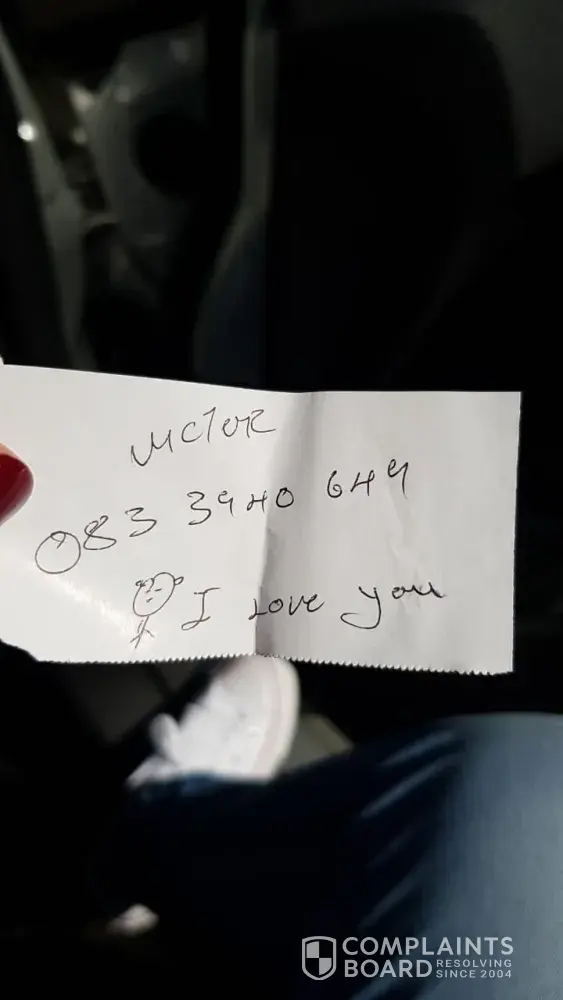 Victor
083 3940 649
I Love you
COMPLAINTS
BOARD RESOLVING
SINCE 2004